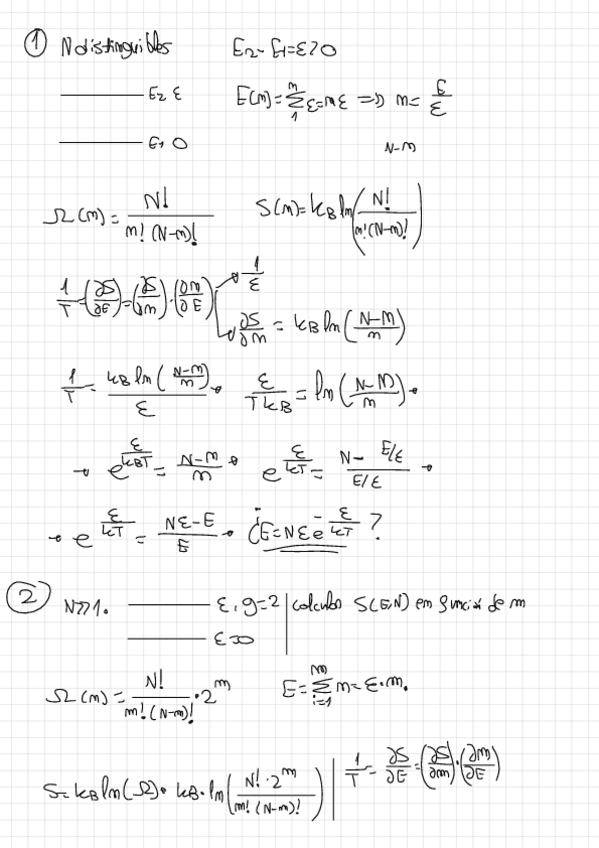 ① N distinguibles E₂-E₁=ε>0
——— E₂ ε E(m)=∑₁ᵐ ε=mε ⇒ m= E/ε
——— E₁ 0 N-m
Ω(m)= N!/(m!(N-m)!) S(m)=k_B ln(N!/(m!(N-m)!))
1/T=(∂S/∂E)=(∂S/∂m)·(∂m/∂E) → 1/ε
→ ∂S/∂m = k_B ln((N-m)/m)
1/T= k_B ln((N-m)/m)/ε → ε/(T k_B)=ln((N-m)/m) →
→ e^(ε/(k_B T))= (N-m)/m → e^(ε/(kT))= (N-E/ε)/(E/ε) →
→ e^(ε/(kT)) = (Nε-E)/E → ¿E=Nε e^(-ε/(kT))?
② N>>1. ——— ε, g=2 | calculo S(E,N) en función de m
——— ε=0
Ω(m)= N!/(m!(N-m)!) · 2ᵐ E=∑ᵢ₌₁ᵐ m=ε·m.
S=k_B ln(Ω)= k_B·ln(N!·2ᵐ/(m!(N-m)!)) | 1/T= ∂S/∂E=(∂S/∂m)·(∂m/∂E)